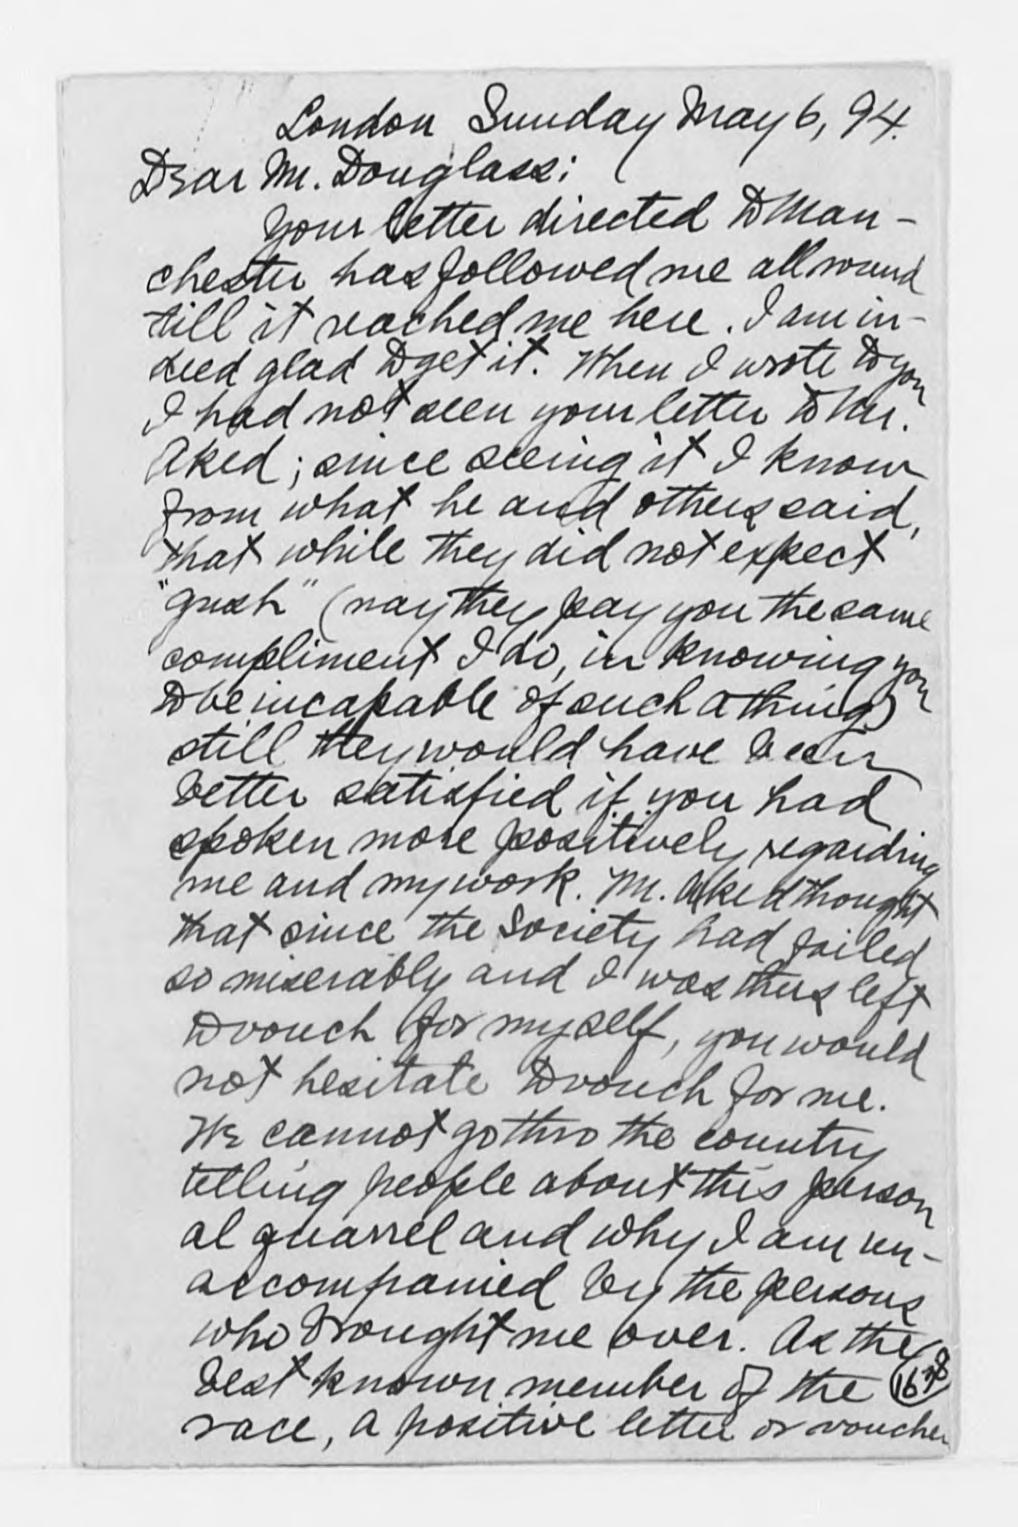 London Sunday May 6, 94.
Dear Mr. Douglass:
Your letter directed to Man-
chester has followed me all round
till it reached me here. I am in-
deed glad to get it. When I wrote to you
I had not seen your letter to Mr.
Aked; since seeing it I know
from what he and others said,
that while they did not expect
"gush" (nay they pay you the same
compliment I do, in knowing you
to be incapable of such a thing)
still they would have been
better satisfied if you had
spoken more positively regarding
me and my work. Mr. Aked thought
that since the Society had failed
so miserably and I was thus left
to vouch for myself, you would
not hesitate to vouch for me.
We cannot go thro the country
telling people about this person
al quarrel and why I am un-
accompanied by the persons
who brought me over. As the
best known member of the
race, a positive letter or voucher